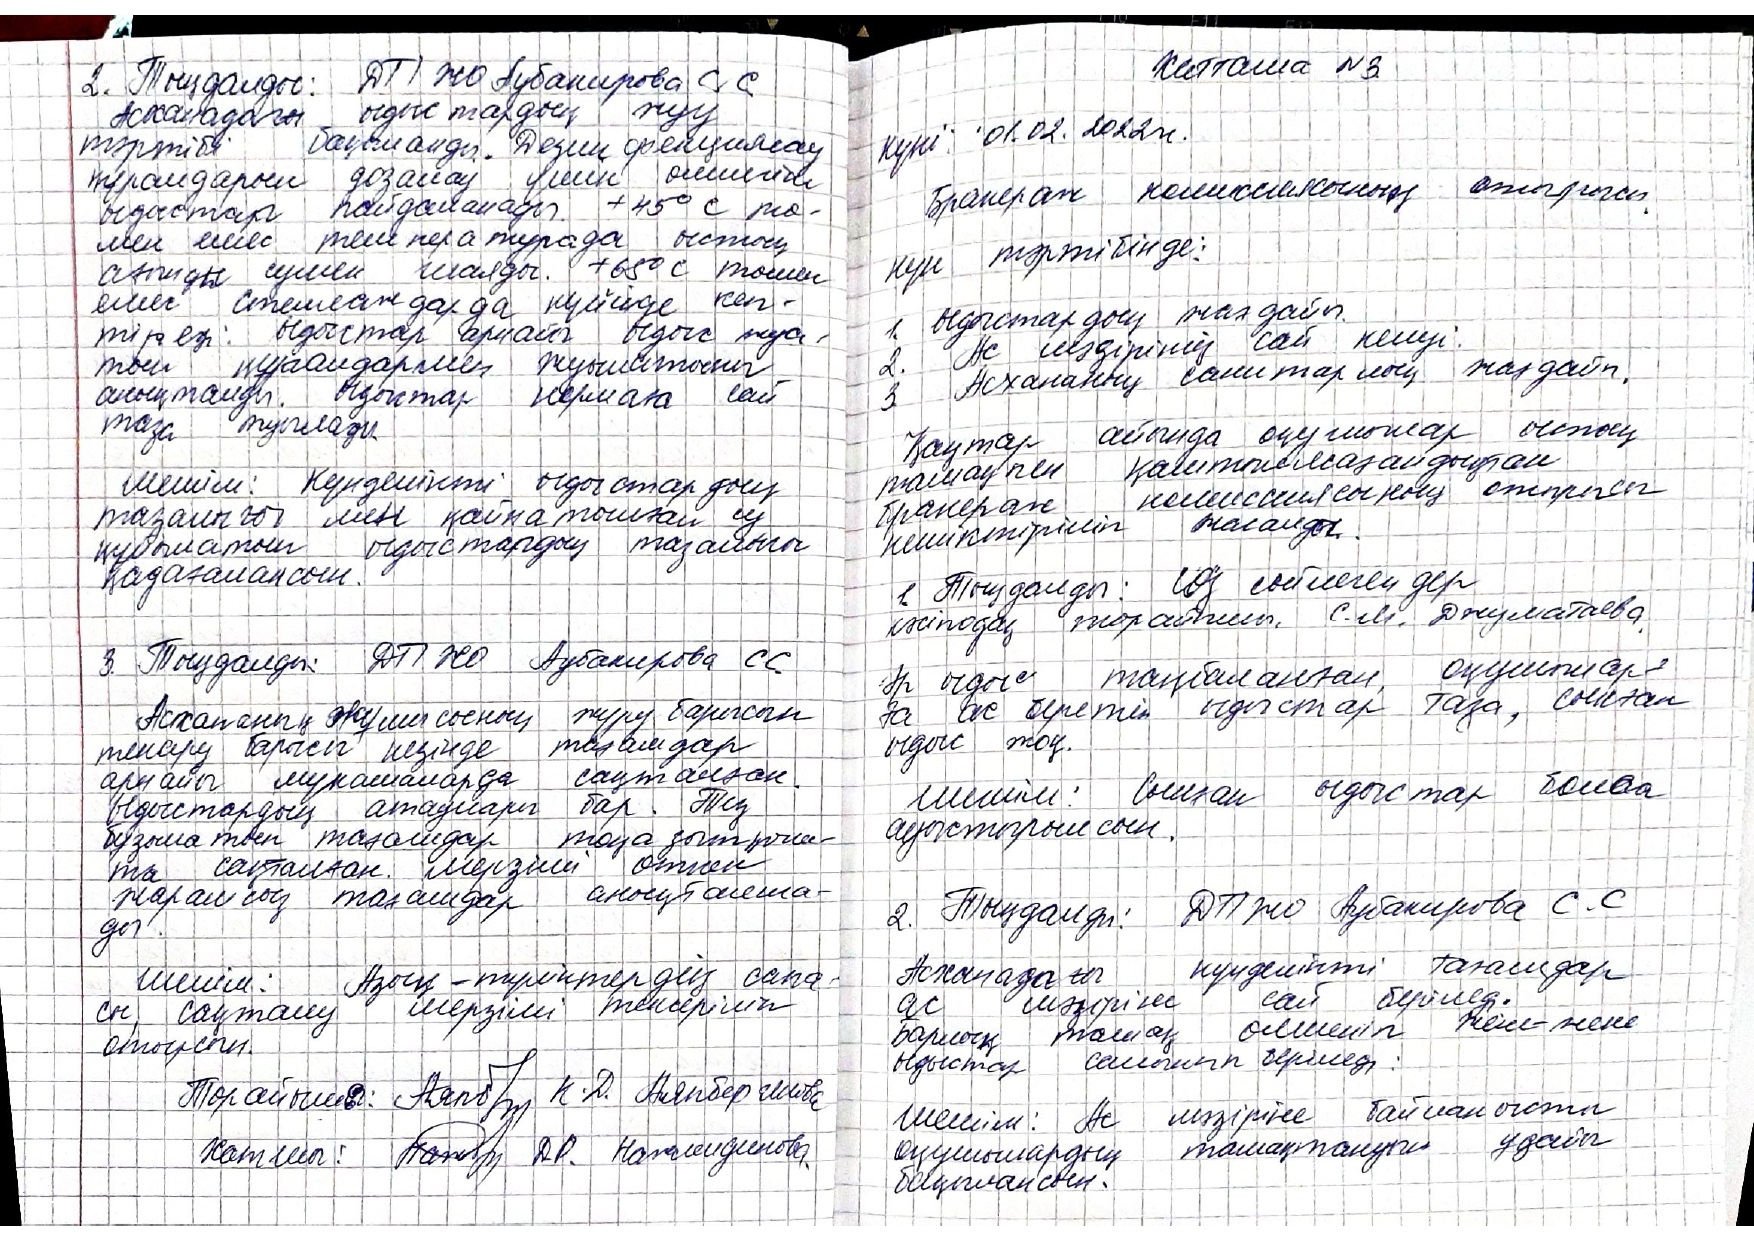 2. Тыңдалды: ДТІЖО Аубакирова С С
Асханадағы ыдыстардың жуу
тәртібі бақыланды. Дезинфекциялау
құралдарын дозалау үшін өлшейтін
ыдыстары пайдаланады. +45° С тө-
мен емес температурада ыстық
ағынды сумен шаяды. +65° С төмен
емес стеллаждарда күйінде кеп-
тіреді. Ыдыстар арнайы ыдыс жуа-
тын құралдармен жуылатыны
анықталды. Ыдыстар нормаға сай
таза жуылады
Шешім: Күнделікті ыдыстардың
тазалығы мен қайнатылған су
құйылатын ыдыстардың тазалығы
қадағалансын.
3. Тыңдалды: ДТІЖО Аубакирова С С
Асхананың жұмысының жүру барысын
тексеру барысы кезінде тағамдар
арнайы мұқаммаларда сақталған.
Ыдыстардың атаулары бар. Тез
бұзылатын тағамдар тоңазытқыш-
та сақталған. Мерзімі өткен
жарамсыз тағамдар анықталма-
ды.
Шешім: Азық-түліктердің сапа-
сы, сақталу мерзімі тексеріліп
отырсын.
Төрайымы: К.Д. Аяпбергенова
Хатшы: Д.О. Нажмидинова
Хаттама №3
күні: 01.02.2022ж.
Бракераж комиссиясының отырысы.
күн тәртібінде:
1. Ыдыстардың жағдайы.
2. Ас мәзірінің сай келуі.
3 Асхананың санитарлық жағдайы.
Қаңтар айында оқушылар ыстық
тамақпен қамтылмағандықтан
бракераж комиссиясының отырысы
кешіктіріліп жасалды.
1. Тыңдалды: Сөз сөйлегендер
кәсіподақ төрайымы. С.М. Джуматаева.
Әр ыдыс таңбаланған, оқушылар-
ға ас беретін ыдыстар таза, сынған
ыдыс жоқ.
Шешім: Сынған ыдыстар болса
ауыстырылсын.
2. Тыңдалды: ДТІЖО Аубакирова С.С
Асханадағы күнделікті тағамдар
ас мәзіріне сай беріледі.
Барлық тамақ өлшеніп жеке-жеке
ыдыстар салынып беріледі:
Шешім: Ас мәзіріне байланысты
оқушылардың тамақтануын ұдайы
бақылансын.